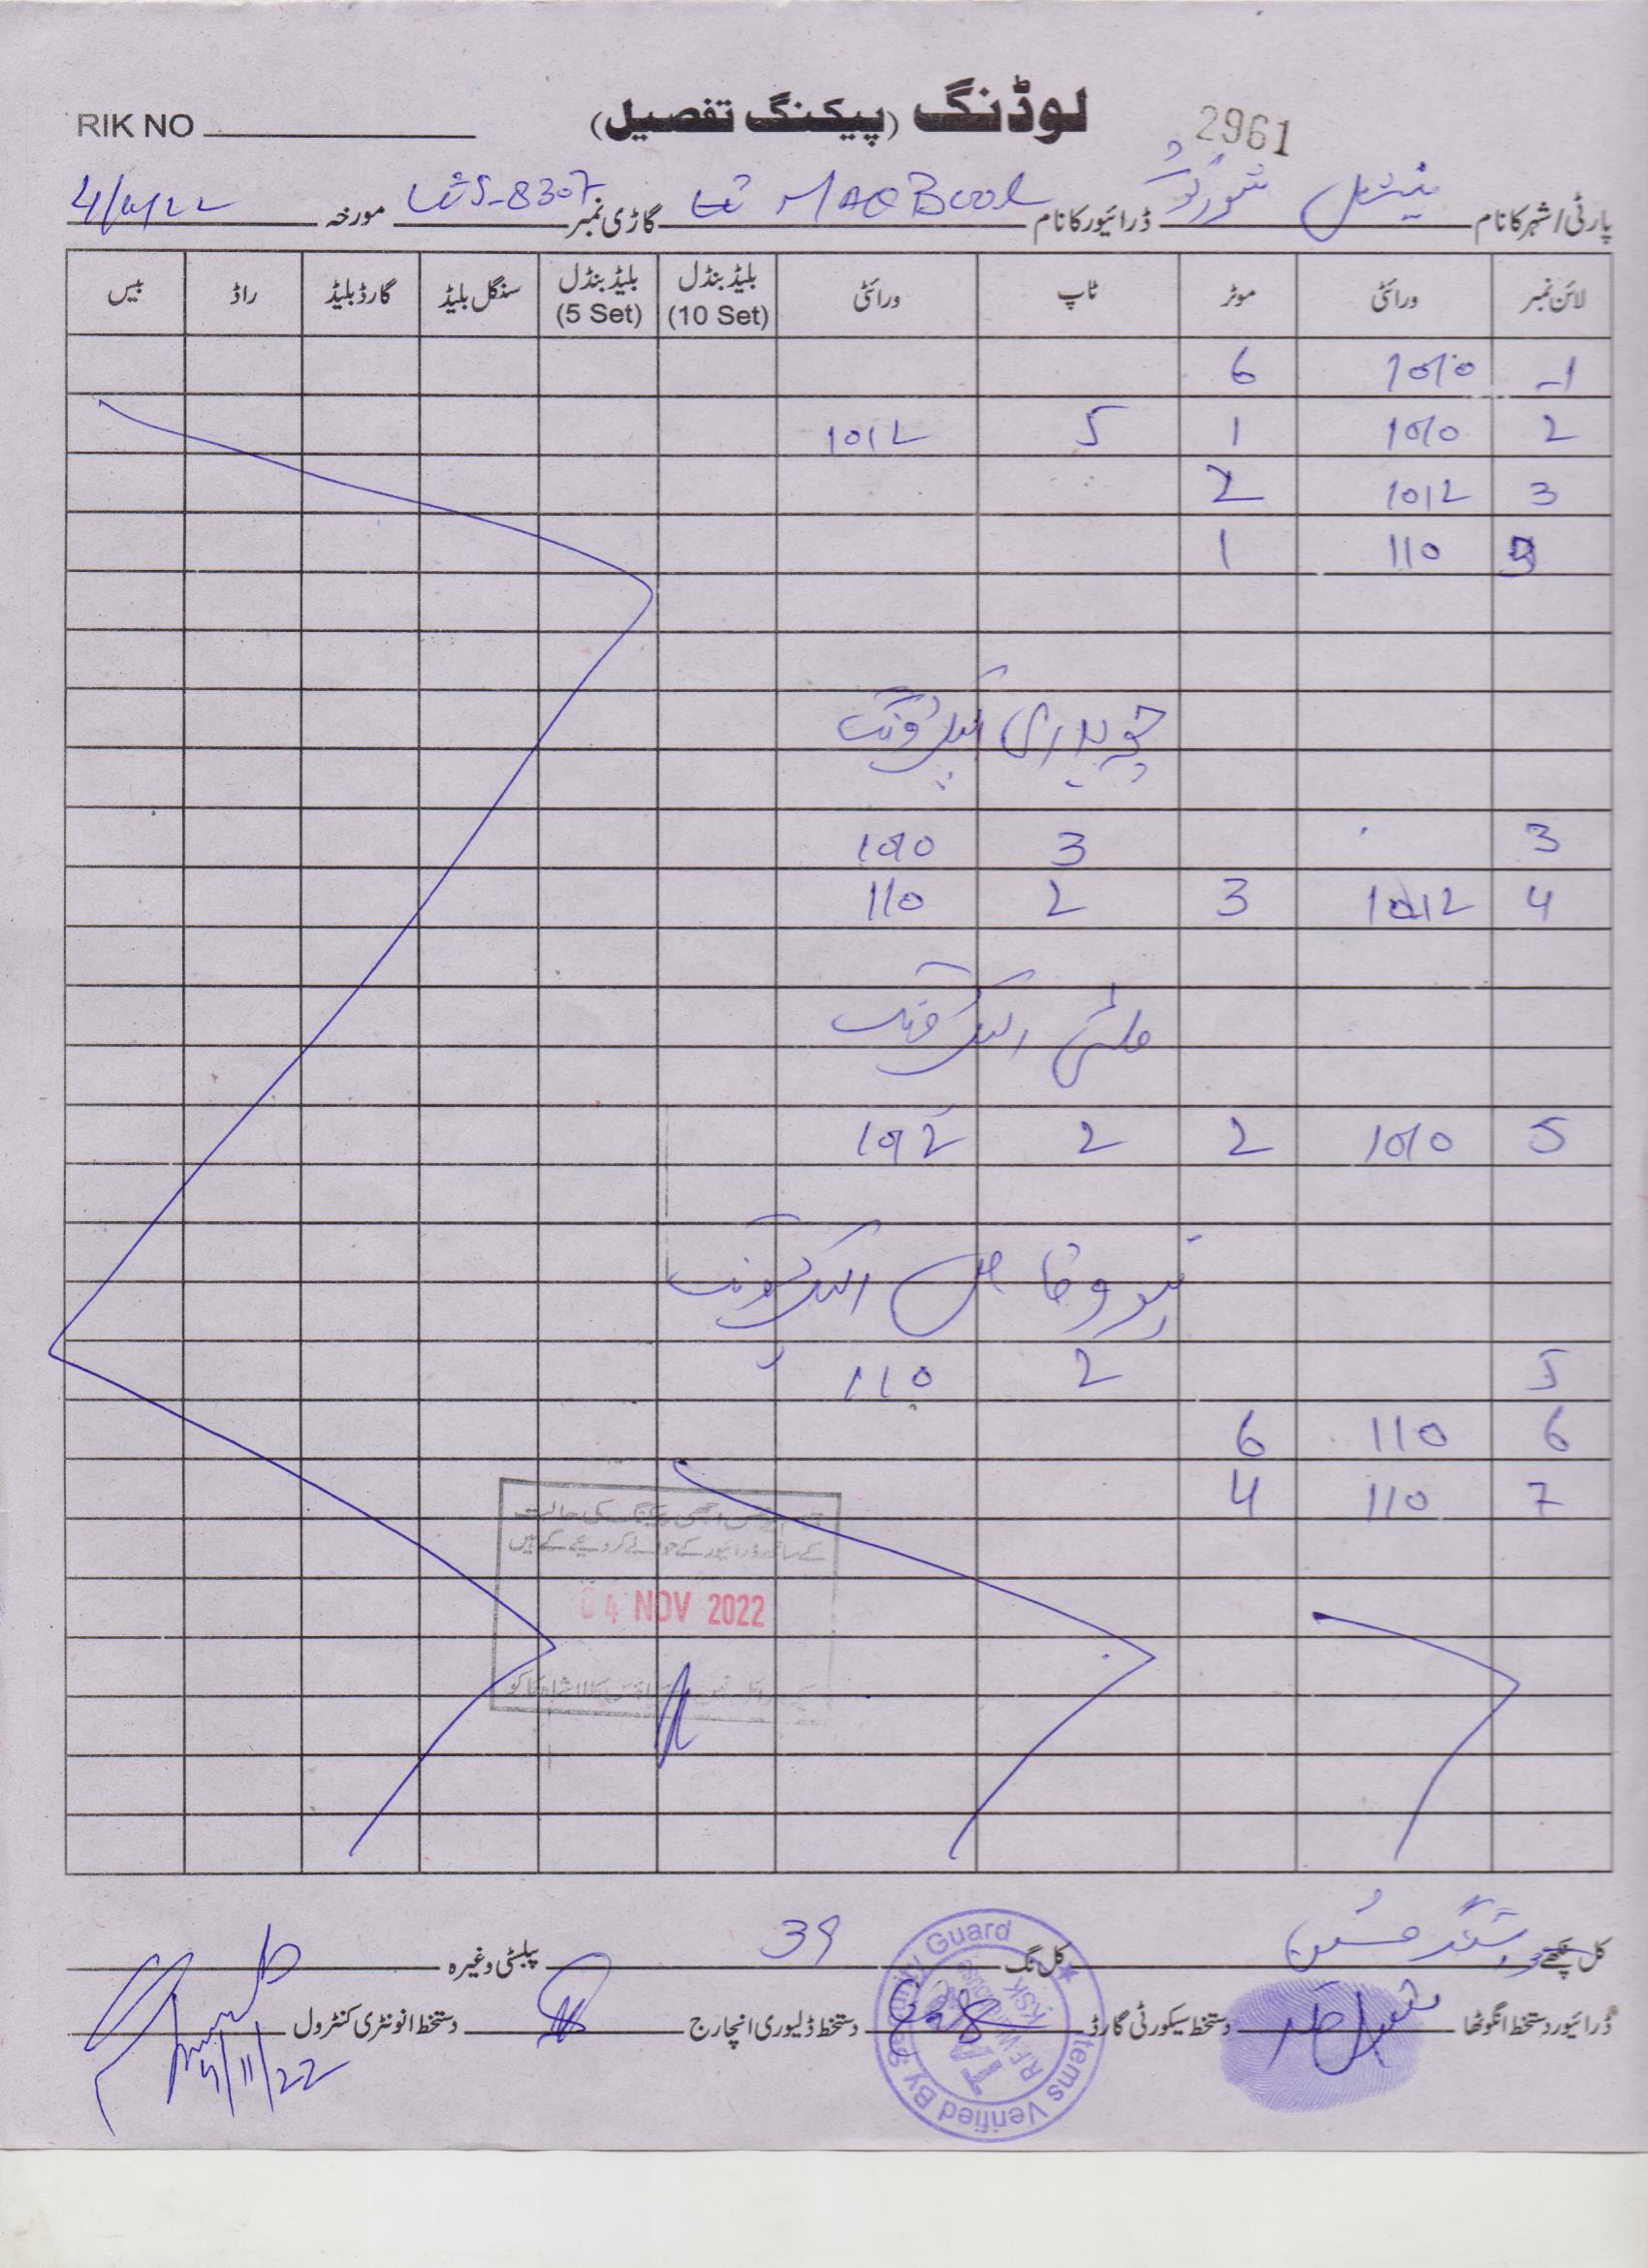 RIK NO
لوڈنگ (پیکنگ تفصیل)
2961
پارٹی/شہر کا نام نیشنل ڈرائیور کا نام MAQBOOL گاڑی نمبر 8307 مورخہ 4/11/22
لائن نمبر ورائٹی موٹر ٹاپ ورائٹی بلیڈ بنڈل (10 Set) بلیڈ بنڈل (5 Set) سنگل بلیڈ گارڈ بلیڈ راڈ بیس
1 1010 6
2 1010 1 5 1012
3 1012 2
110 1
چوہدری الیکٹرونکس
3 3 1010
4 1012 3 2 110
الیکٹرونکس
5 1010 2 2 1012
نیو الیکٹرونکس
5 2 110
6 110 6
7 110 4
کے ڈرائیور کے حوالے کر دیئے گئے ہیں
04 NOV 2022
کل پنکھے کل نگ 39 پبلسٹی وغیرہ
ڈرائیور دستخط انگوٹھا دستخط سیکورٹی گارڈ دستخط ڈلیوری انچارج دستخط انونٹری کنٹرول
Items Verified By Security Guard
4/11/22